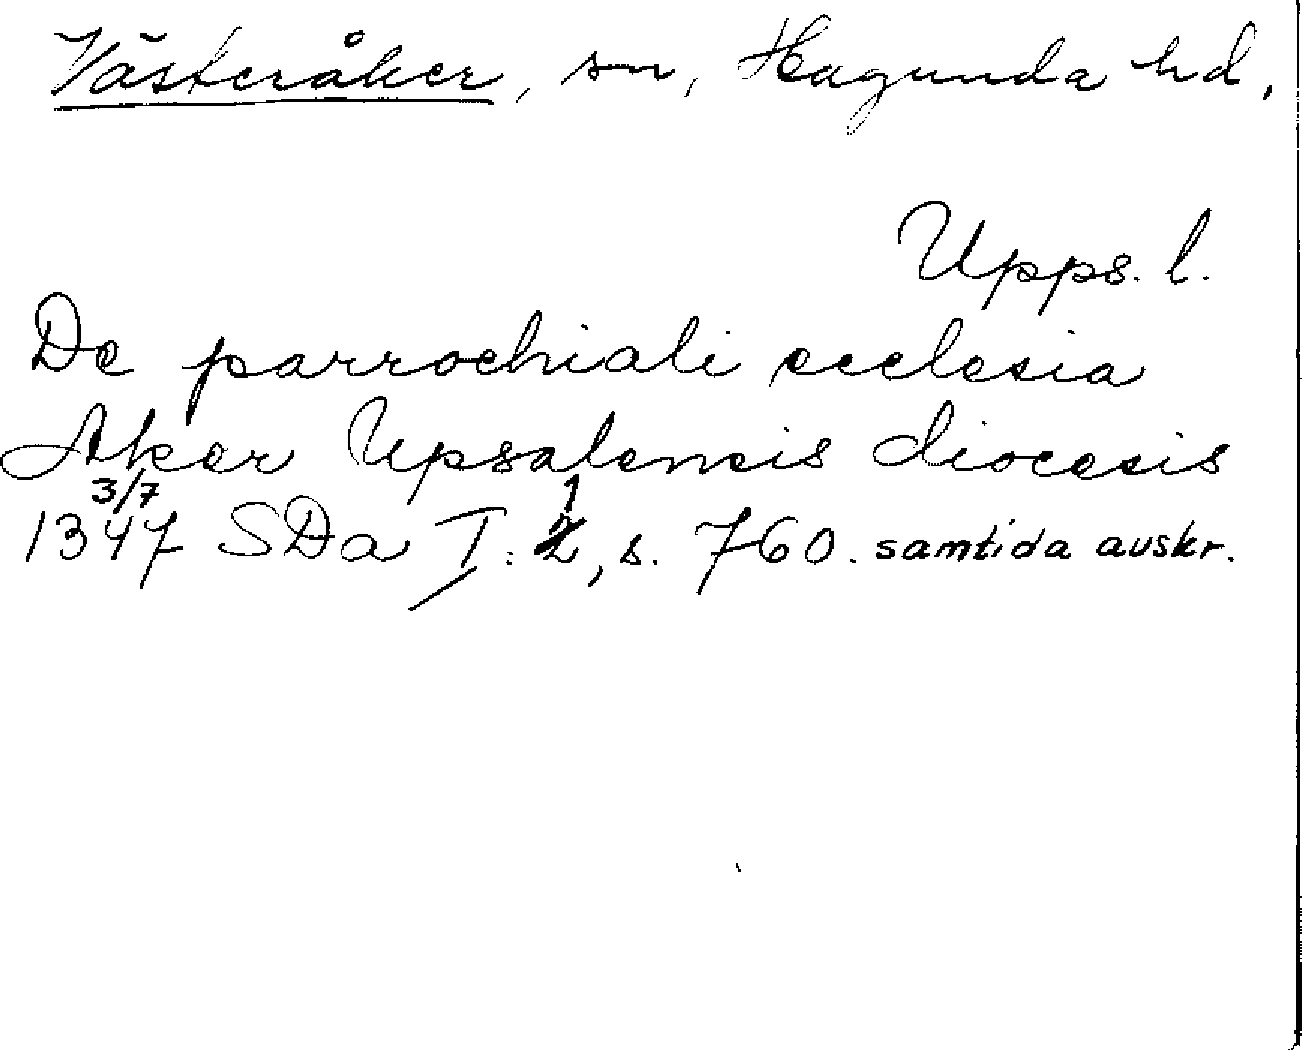 Västeråker, sn, Hagunda hd,
Upps. l.
De parrochiali ecclesia
Aker Upsalensis diocesis
3/7
1347 SDa I: 1, s. 760. samtida avskr.